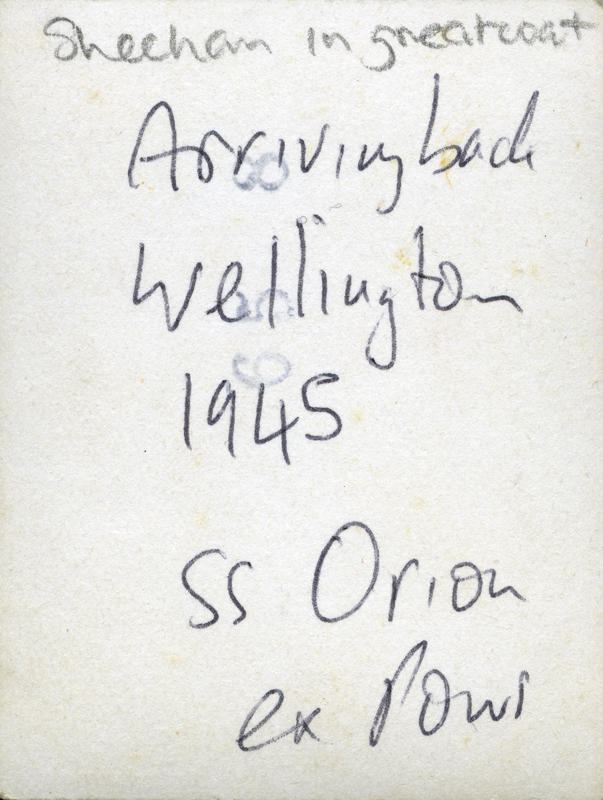 Sheehan in greatcoat
Arriving back
Wellington
1945
SS Orion
ex POWs